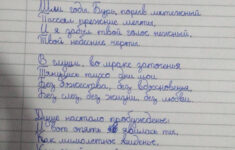 Шли годы. Бурь порыв мятежный
Рассеял прежние мечты,
И я забыл твой голос нежный,
Твой небесные черты.
В глуши, во мраке заточенья
Тянулись тихо дни мои
Без божества, без вдохновенья,
Без слёз, без жизни, без любви.
Душе настало пробужденье:
И вот опять явилась ты,
Как мимолётное виденье,